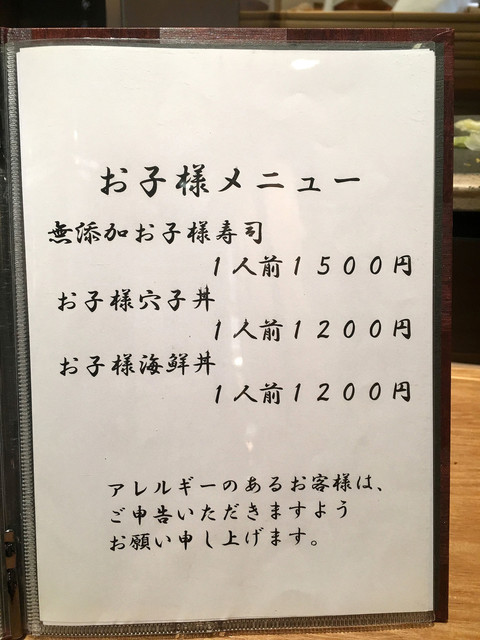 お子様メニュー
無添加お子様寿司
１人前１５００円
お子様穴子丼
１人前１２００円
お子様海鮮丼
１人前１２００円
アレルギーのあるお客様は、
ご申告いただきますよう
お願い申し上げます。